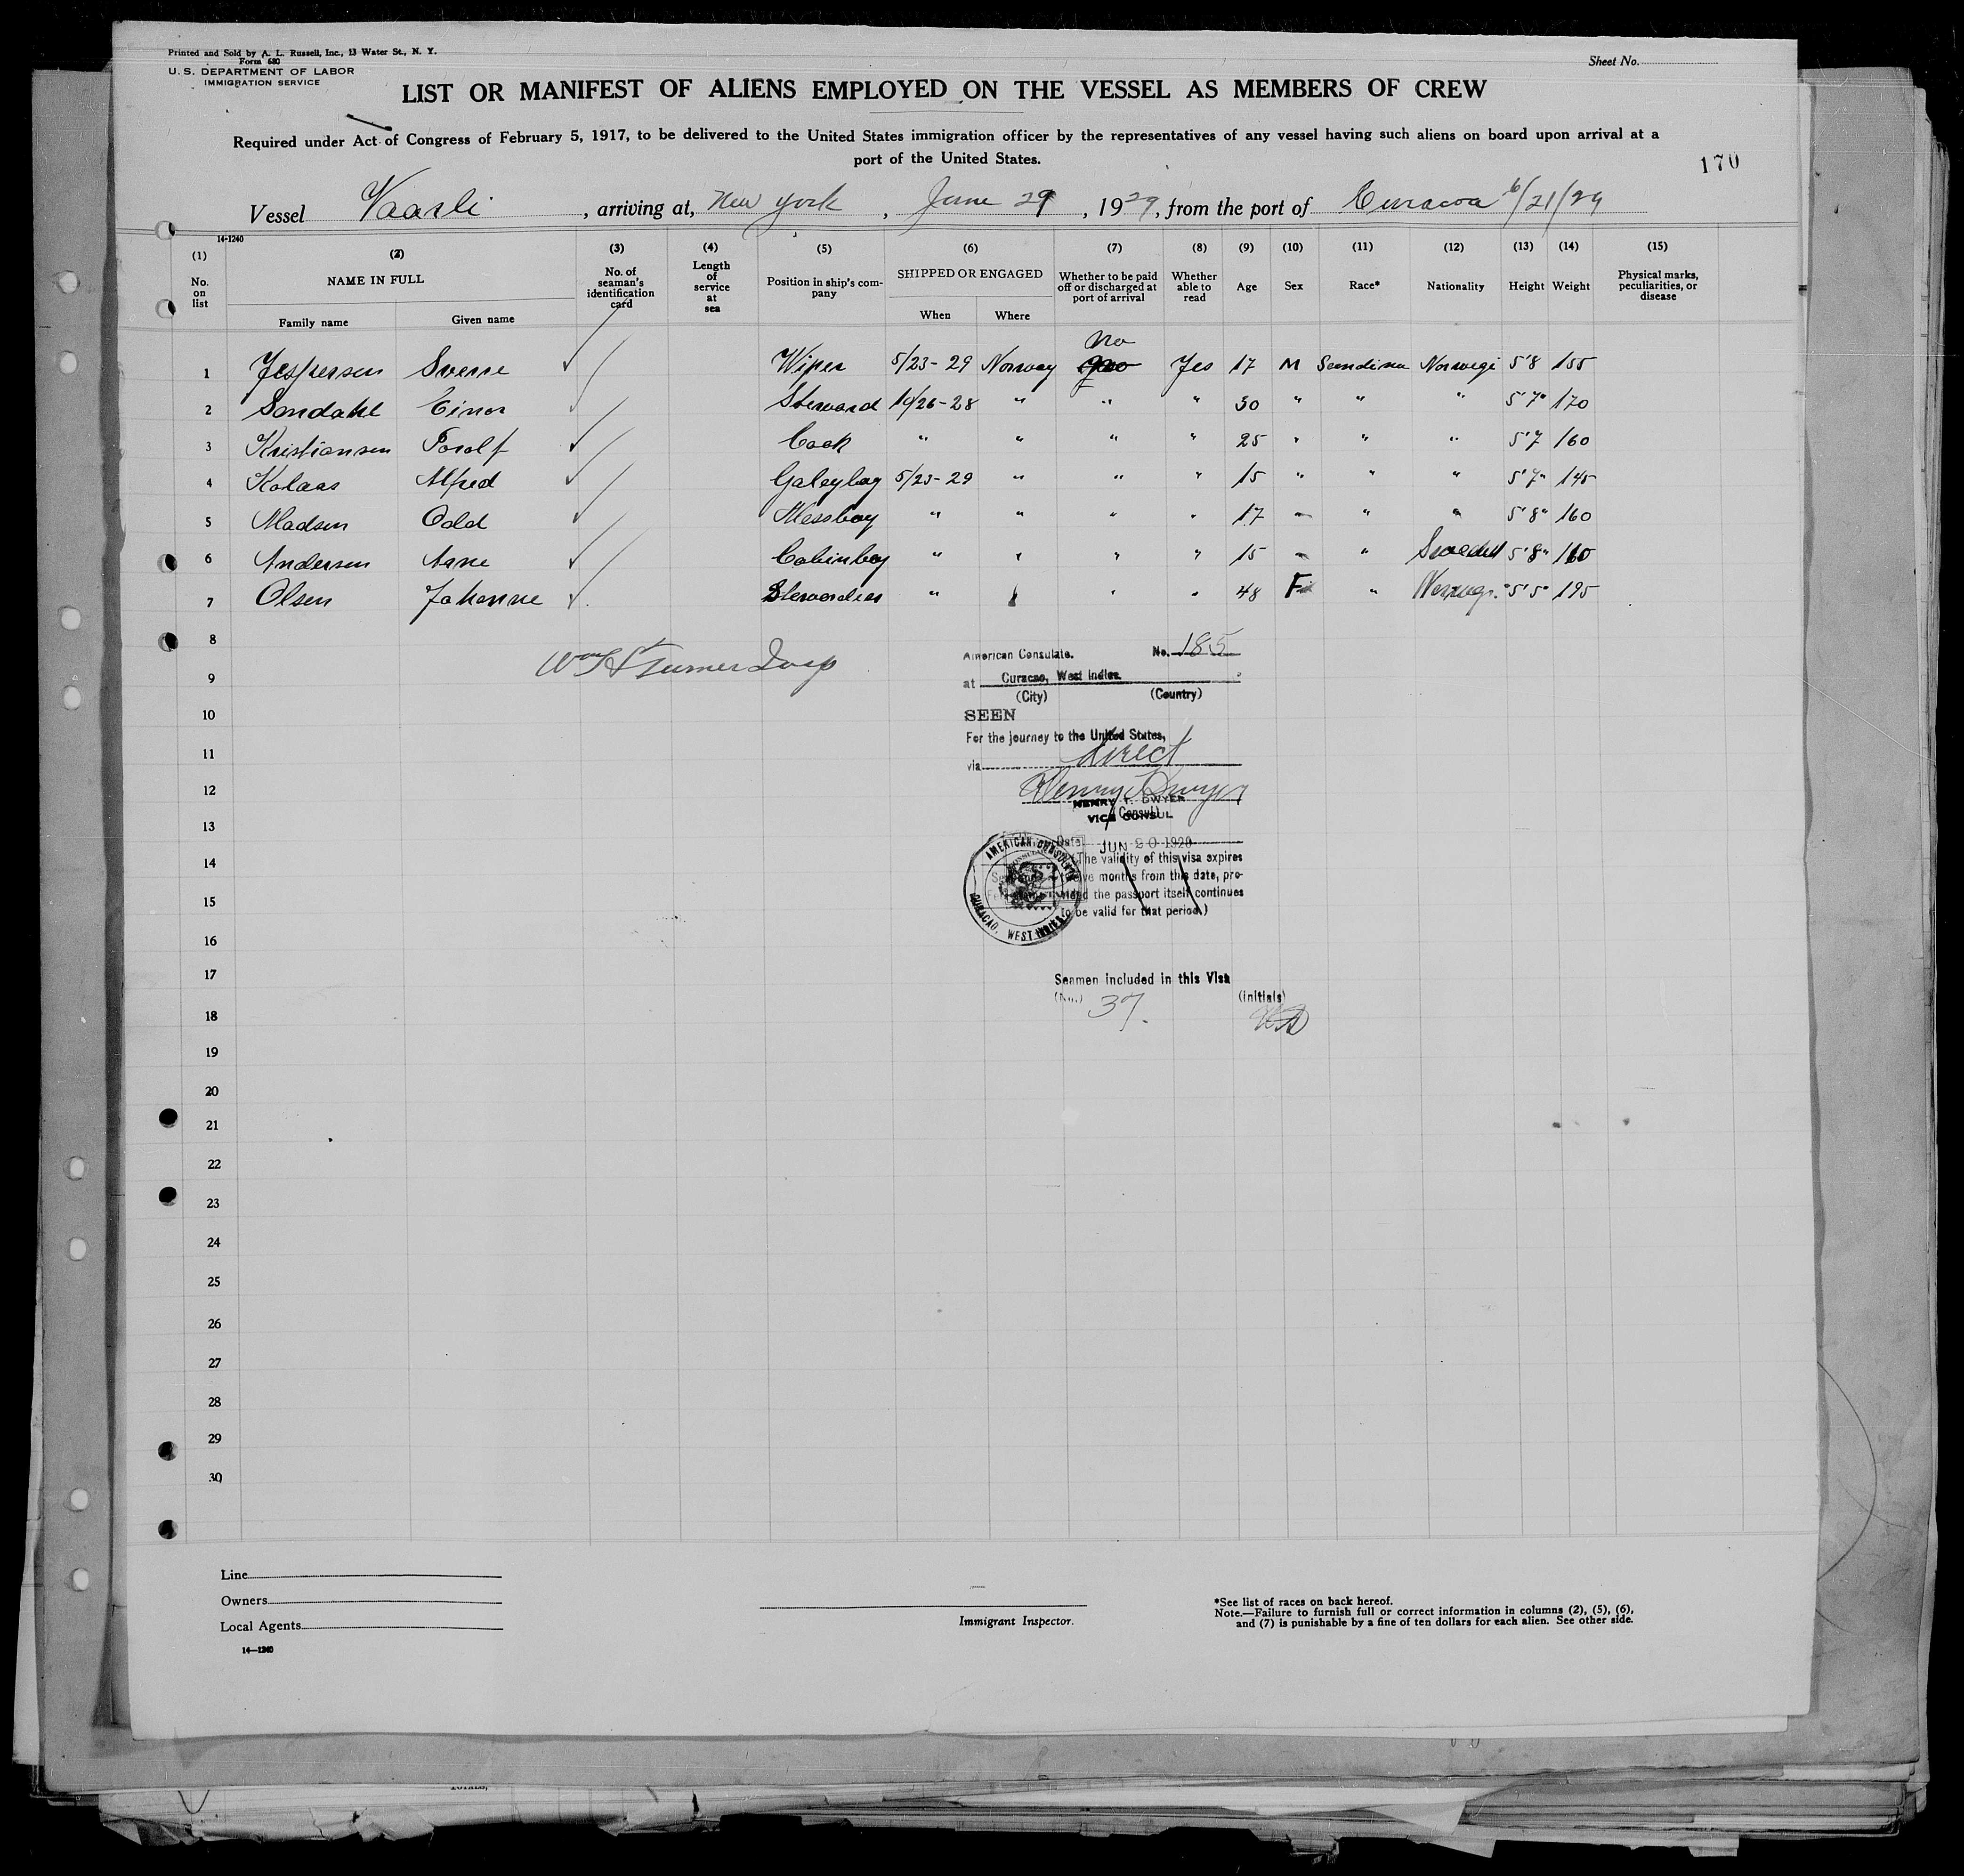 Printed and Sold by A. L. Russell, Inc., 13 Water St., N. Y.
Form 680
U. S. DEPARTMENT OF LABOR
IMMIGRATION SERVICE
Sheet No.
LIST OR MANIFEST OF ALIENS EMPLOYED ON THE VESSEL AS MEMBERS OF CREW
Required under Act of Congress of February 5, 1917, to be delivered to the United States immigration officer by the representatives of any vessel having such aliens on board upon arrival at a
port of the United States.
170
Vessel Vaarli, arriving at, New York, June 29, 1929, from the port of Curacoa 6/21/29
14-1240
(1) (2) (3) (4) (5) (6) (7) (8) (9) (10) (11) (12) (13) (14) (15)
No. on list NAME IN FULL No. of seaman's identification card Length of service at sea Position in ship's company SHIPPED OR ENGAGED Whether to be paid off or discharged at port of arrival Whether able to read Age Sex Race* Nationality Height Weight Physical marks, peculiarities, or disease
Family name Given name When Where
no
1 Jespersen Sverre ✓ Wiper 5/23-29 Norway Yes 17 M Scandinav Norwegi 5'8 155
2 Sondahl Einar ✓ Steward 10/26-28 " " " 30 " " " 5'7" 170
3 Kristiansen Torolf ✓ Cook " " " " 25 " " " 5'7 160
4 Kolaas Alfred ✓ Galeyboy 5/23-29 " " " 15 " " " 5'7" 145
5 Madsen Odd ✓ Messboy " " " " 17 " " " 5'8" 160
6 Andersen Arne ✓ Cabinboy " " " " 15 " " Swedish 5'8" 160
7 Olsen Johanne ✓ Stewardess " " " " 48 F " Norweg. 5'5" 195
8
9
10
11
12
13
14
15
16
17
18
19
20
21
22
23
24
25
26
27
28
29
30
Turner Insp
American Consulate. No. 185
at Curacao, West Indies.
(City) (Country)
SEEN
For the journey to the United States,
via direct
Henry T. Dwyer
HENRY T. DWYER
(Consul)
VICE CONSUL
Date JUN 20 1929
(The validity of this visa expires
twelve months from this date, pro-
vided the passport itself continues
to be valid for that period.)
AMERICAN CONSULATE
CURACAO, WEST INDIES
Seamen included in this Visa
(No.) 37. (initials)
Line
Owners
Local Agents
14—1240
Immigrant Inspector.
*See list of races on back hereof.
Note.—Failure to furnish full or correct information in columns (2), (5), (6),
and (7) is punishable by a fine of ten dollars for each alien. See other side.